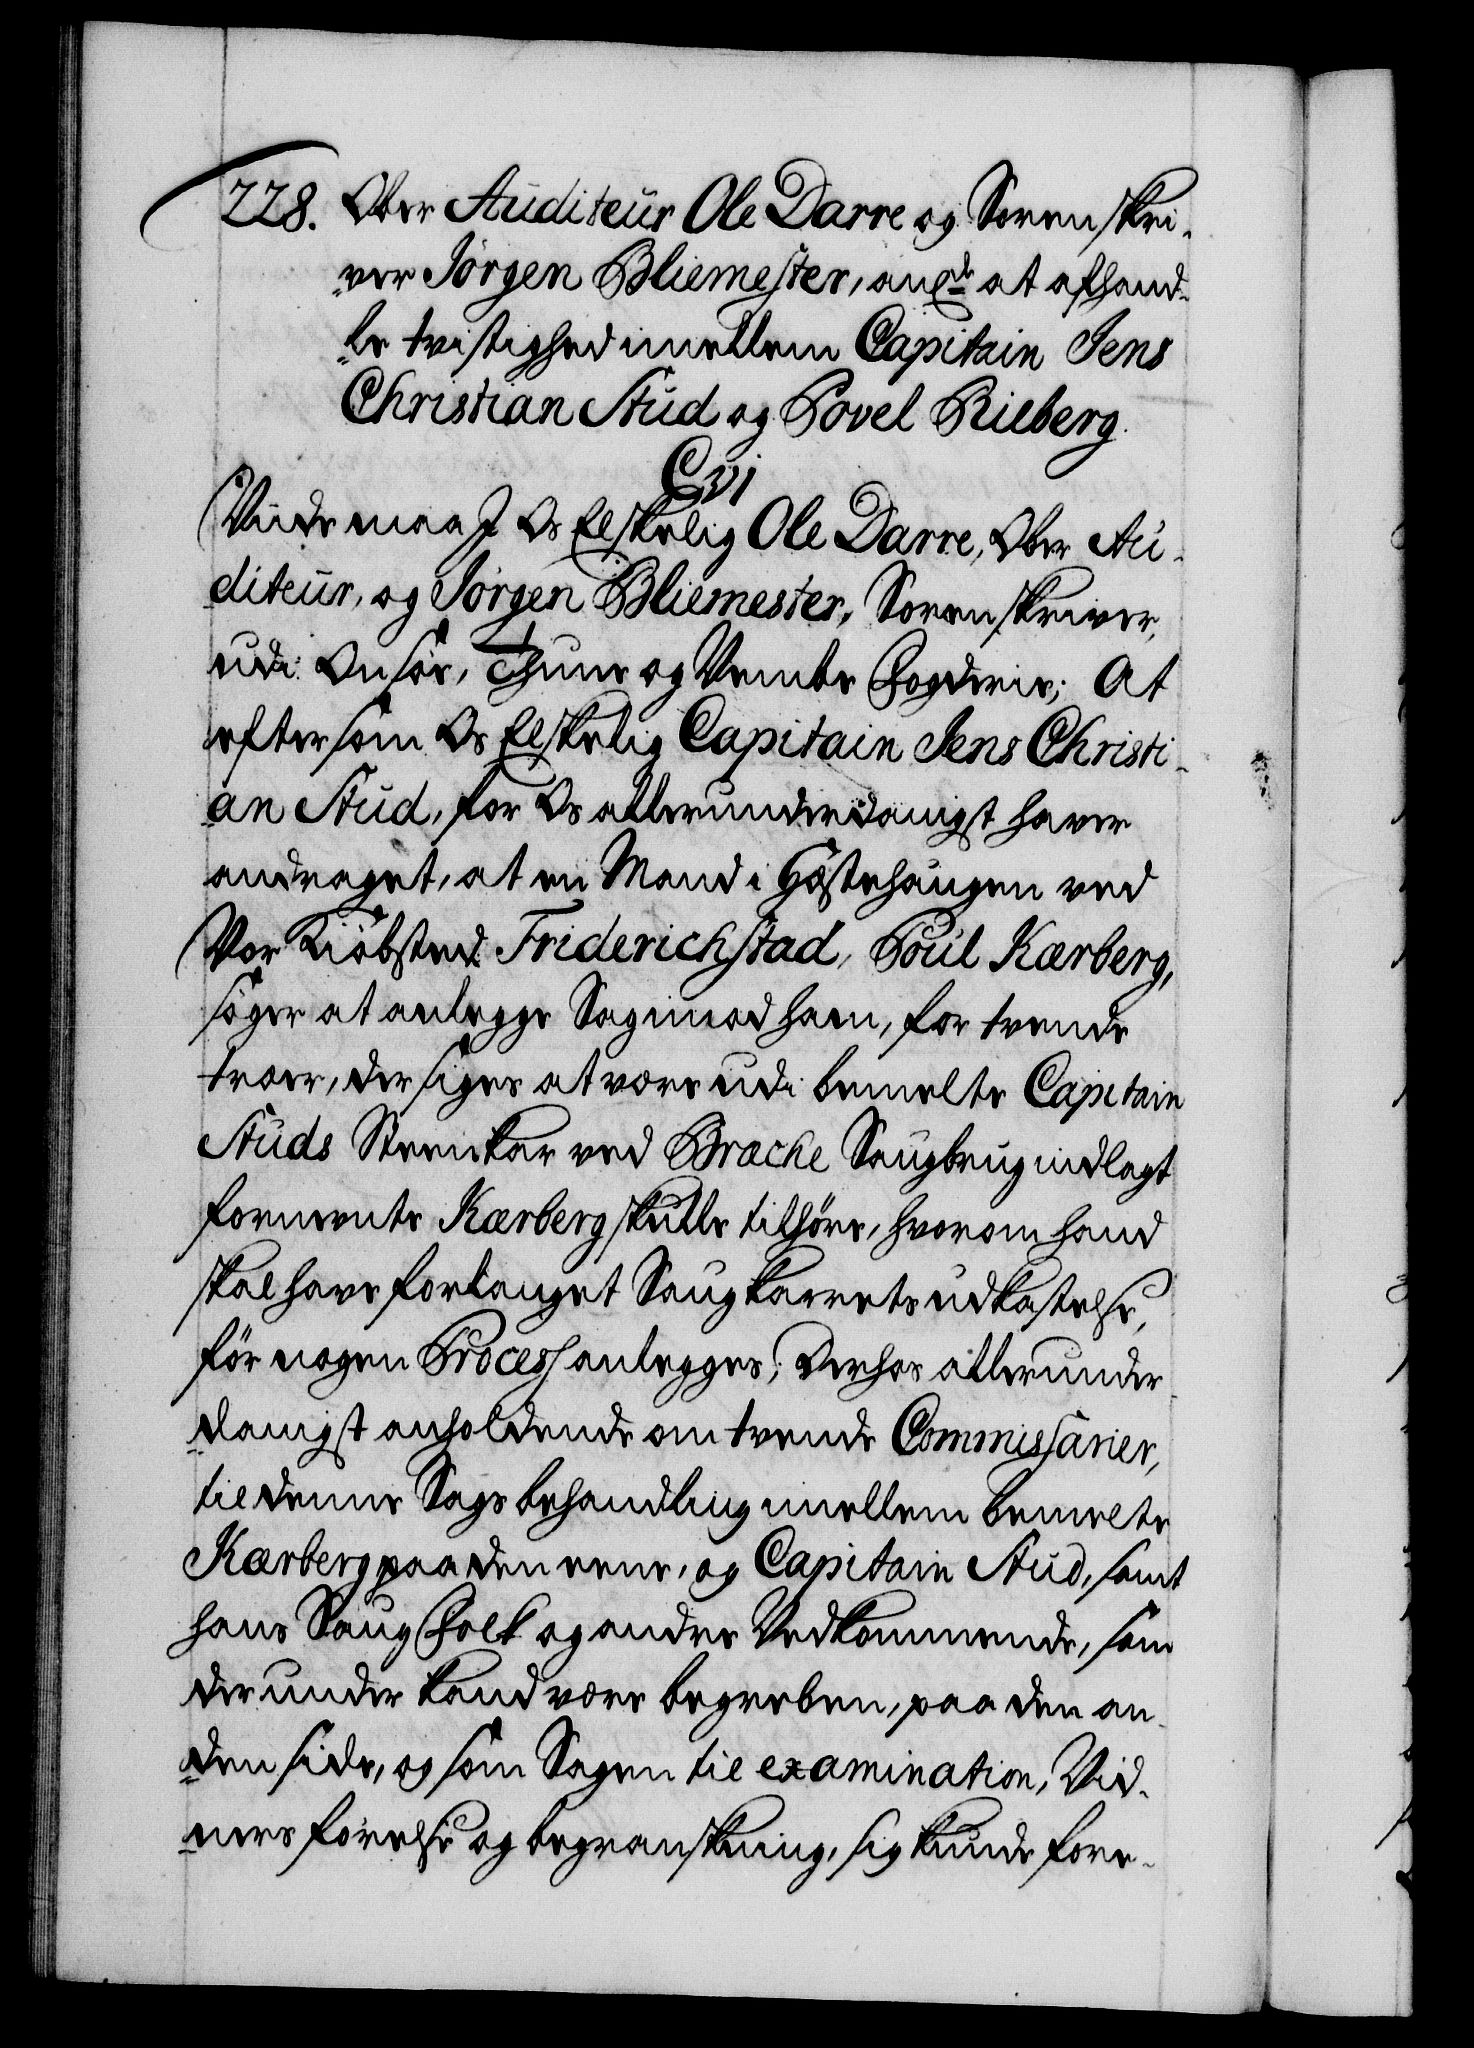 228. Ober Auditeur Ole Darre og Sorenskri-
ver Jörgen Bliemester, ang at afhand-
le tvistighed imellem Capitain Jens
Christian Stud og Povel Kilberg.
C vi
Vide maa I Os Elskelig Ole Darre, Ober Au-
diteur, og Jörgen Bliemester, Sorenskriver,
udi Onsöe, Thune og Vemble Fogderie; At
eftersom Os Elskelig Capitain Jens Christi-
an Stud, for Os allerunderdanigst haver
andraget, at en Mand i Gæstehaugen ved
Vor Kiöbsted Friderichstad, Poul Kærberg,
söger at anlegge Sag imod ham, for tvende
træer, der siges at være udi bemelte Capitain
Studs Steenkar ved Brache Saugbrug indlagt
formente Kærberg skulle tilhöre, hvorom hand
skal have forlanget Saugkarrets udkastelse,
för nogen Process anlegges; Derhos allerunder-
danigst anholdende om tvende Commissarier,
til denne Sags behandling imellem bemelte
Kærberg paa den eene, og Capitain Stud, samt
hans Saug Folk og andre Vedkommende, som
derunder kand være begreben, paa den an-
den side, og som Sagen til examination, Vid-
ners förelse og begranskning, sig kunde fore-